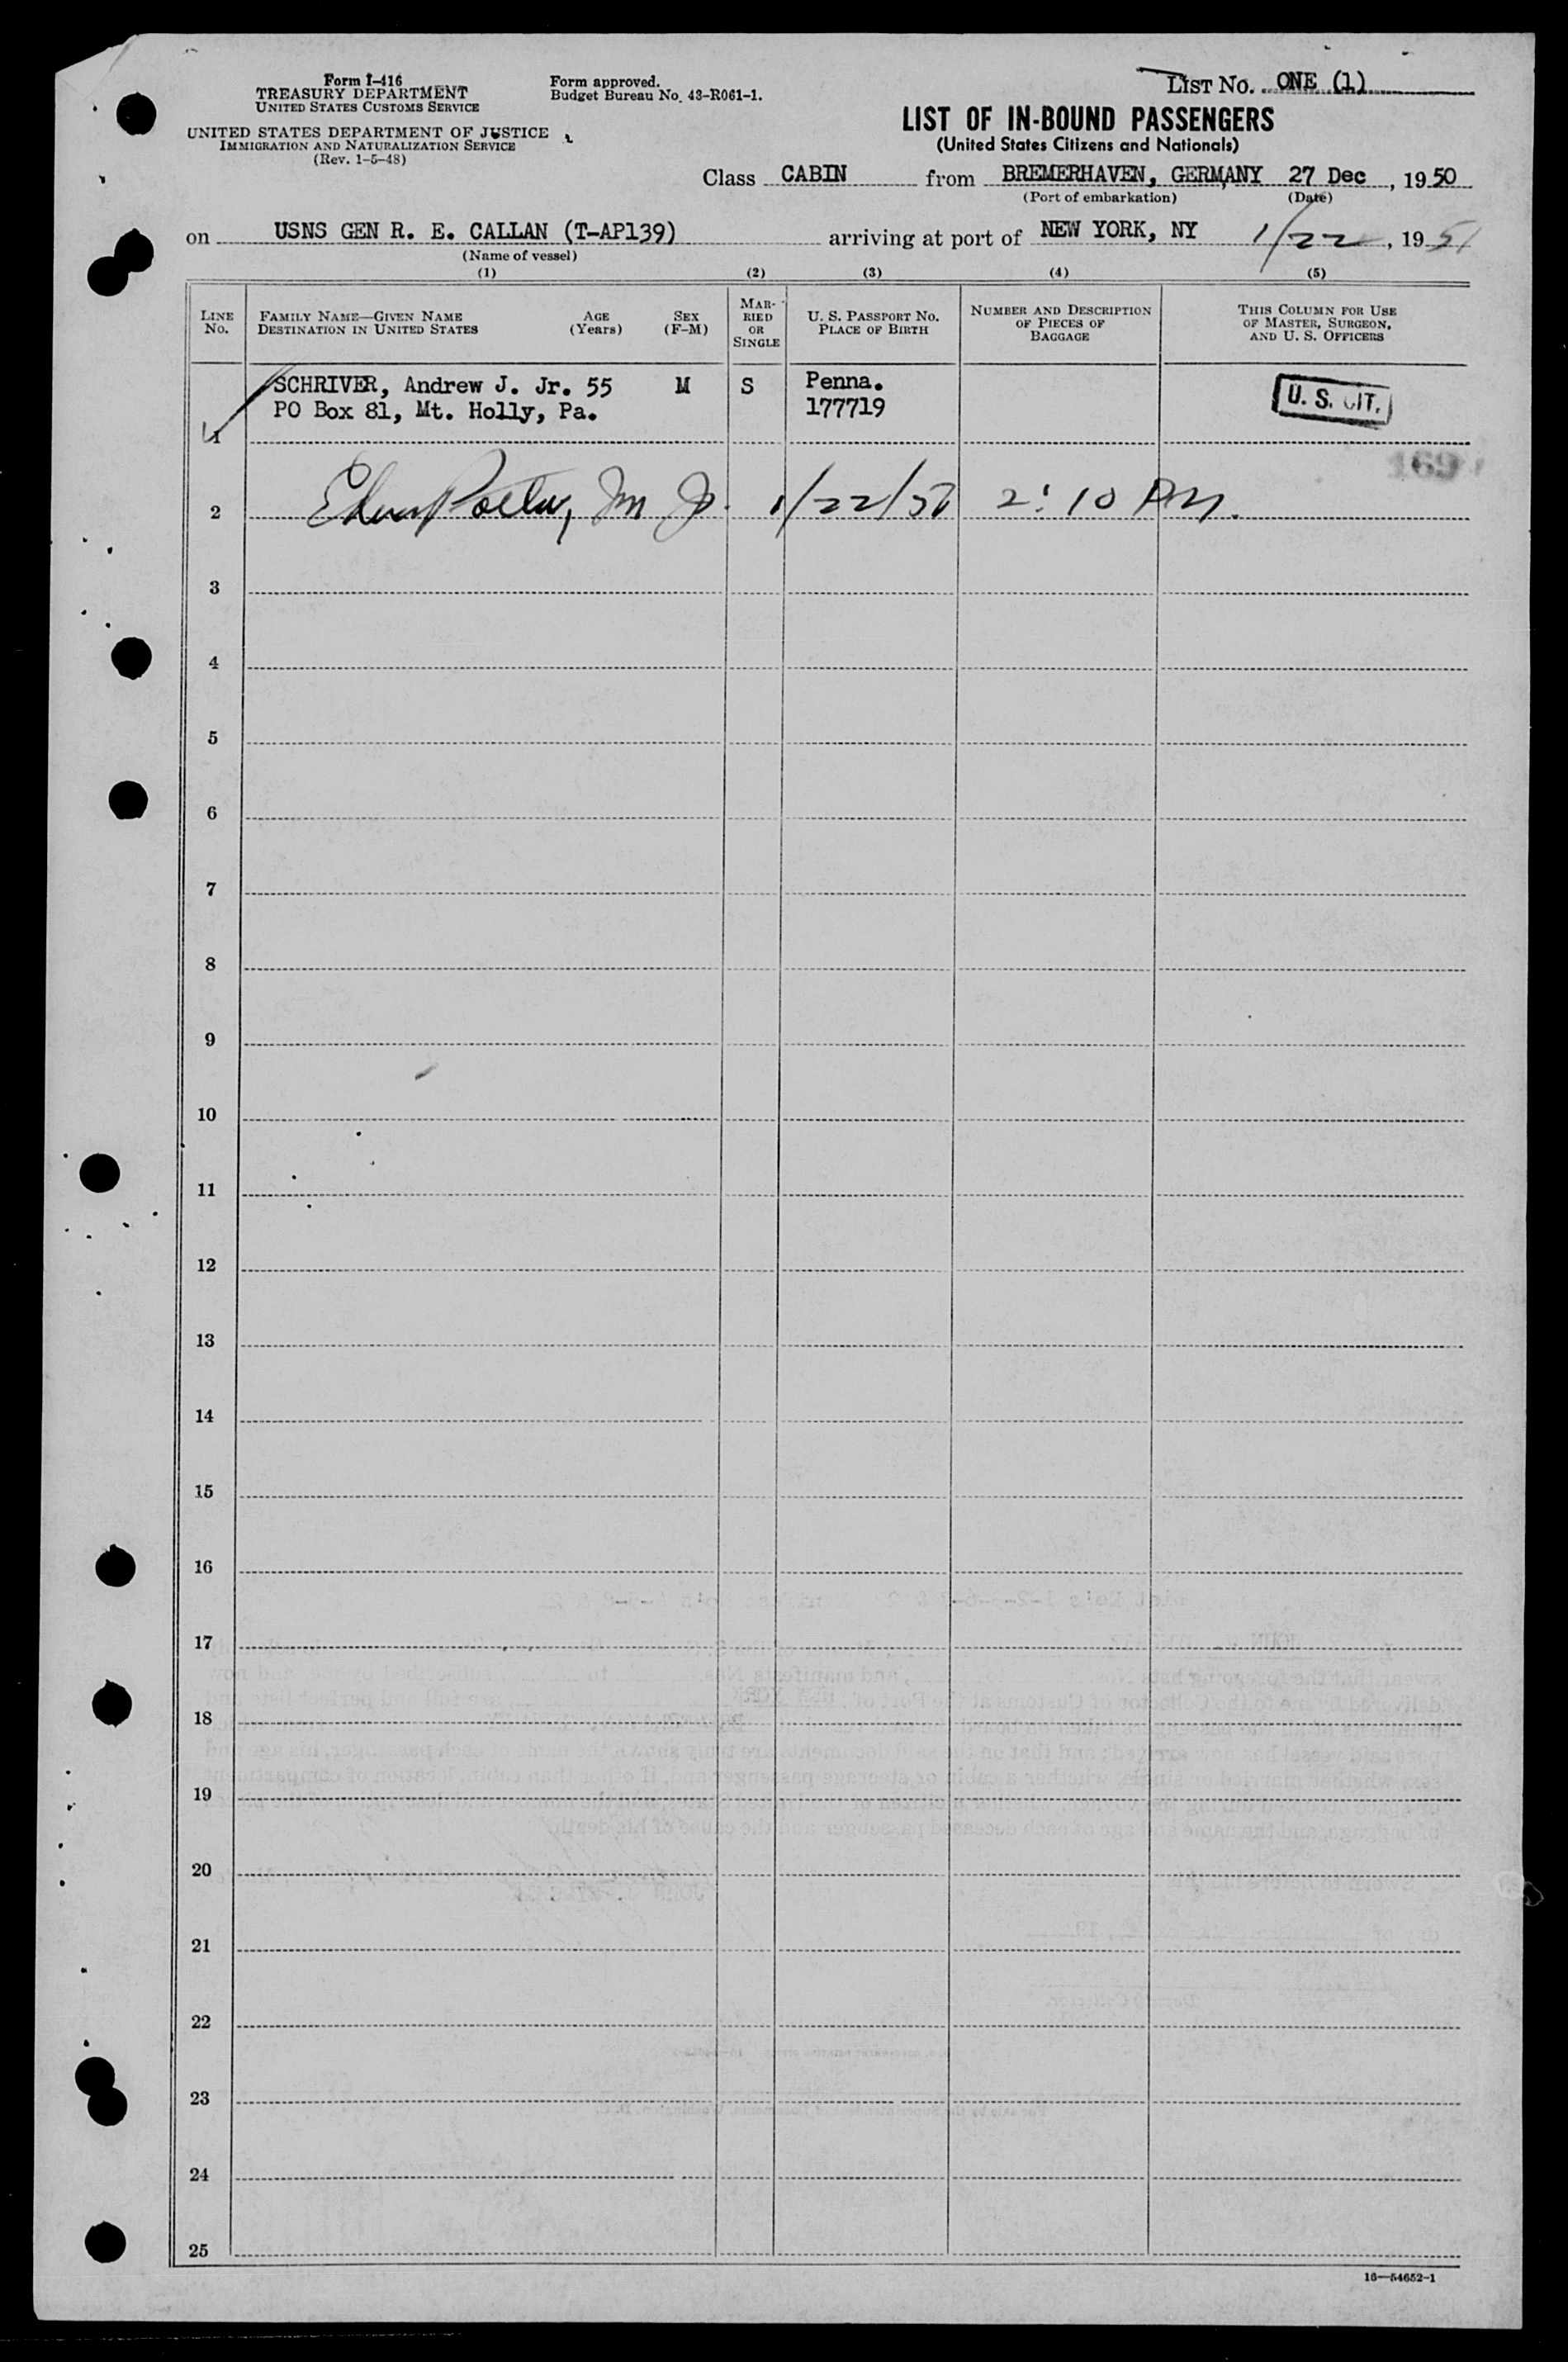 Form I-416
TREASURY DEPARTMENT
UNITED STATES CUSTOMS SERVICE
UNITED STATES DEPARTMENT OF JUSTICE
IMMIGRATION AND NATURALIZATION SERVICE
(Rev. 1-5-48)
Form approved.
Budget Bureau No. 43-R061-1.
LIST No. ONE (1)
LIST OF IN-BOUND PASSENGERS
(United States Citizens and Nationals)
Class CABIN from BREMERHAVEN, GERMANY 27 Dec, 1950
(Port of embarkation) (Date)
on USNS GEN R. E. CALLAN (T-AP139) arriving at port of NEW YORK, NY 1/22, 1951
(Name of vessel)
(1) (2) (3) (4) (5)
LINE No.
FAMILY NAME—GIVEN NAME
DESTINATION IN UNITED STATES
AGE (Years)
SEX (F-M)
MARRIED OR SINGLE
U. S. PASSPORT No.
PLACE OF BIRTH
NUMBER AND DESCRIPTION OF PIECES OF BAGGAGE
THIS COLUMN FOR USE OF MASTER, SURGEON, AND U. S. OFFICERS
SCHRIVER, Andrew J. Jr. 55 M S Penna. U. S. CIT.
PO Box 81, Mt. Holly, Pa. 177719
1
169
2 1/22/51 2:10 PM.
3
4
5
6
7
8
9
10
11
12
13
14
15
16
17
18
19
20
21
22
23
24
25
16—54652-1